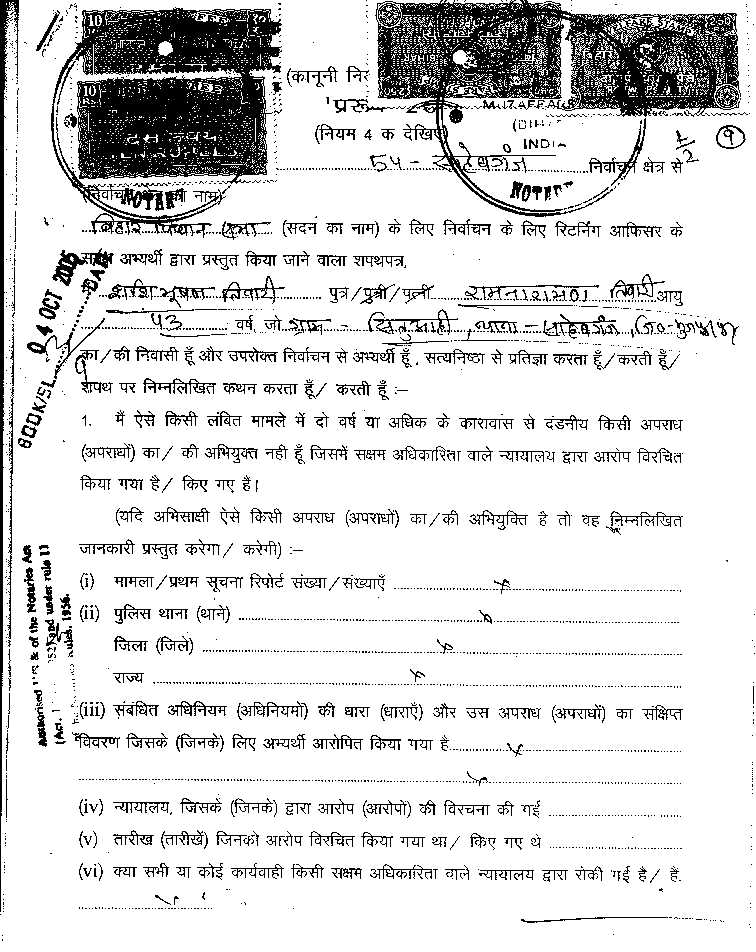 10
10
दस रुपये
(कानूनी
MUZAFFAR
(BIHAR
INDIA
NOTARY
NOTARY
(नियम 4 क देखिए)
1/2
9
54 - साहेबगंज निर्वाचन क्षेत्र से
(निर्वाचन क्षेत्र का नाम)
बिहार विधान सभा (सदन का नाम) के लिए निर्वाचन के लिए रिटर्निंग आफिसर के
अभ्यर्थी द्वारा प्रस्तुत किया जाने वाला शपथपत्र,
शशि भूषण तिवारी पुत्र/पुत्री/पत्नी रामनारायण तिवारी आयु
43 वर्ष, जो ग्राम - थाना - साहेबगंज,
का/की निवासी हूँ और उपरोक्त निर्वाचन से अभ्यर्थी हूँ, सत्यनिष्ठा से प्रतिज्ञा करता हूँ/करती हूँ/
शपथ पर निम्नलिखित कथन करता हूँ/ करती हूँ :–
1. मैं ऐसे किसी लंबित मामले में दो वर्ष या अधिक के कारावास से दंडनीय किसी अपराध
(अपराधों) का/ की अभियुक्त नही हूँ जिसमें सक्षम अधिकारिता वाले न्यायालय द्वारा आरोप विरचित
किया गया है/ किए गए हैं।
(यदि अभिसाक्षी ऐसे किसी अपराध (अपराधों) का/की अभियुक्ति है तो वह निम्नलिखित
जानकारी प्रस्तुत करेगा/ करेगी) :–
(i) मामला/प्रथम सूचना रिपोर्ट संख्या/संख्याएँ x
(ii) पुलिस थाना (थाने) x
जिला (जिले) x
राज्य x
(iii) संबंधित अधिनियम (अधिनियमों) की धारा (धाराएँ) और उस अपराध (अपराधों) का संक्षिप्त
विवरण जिसके (जिनके) लिए अभ्यर्थी आरोपित किया गया है x
x
(iv) न्यायालय, जिसके (जिनके) द्वारा आरोप (आरोपों) की विरचना की गई
(v) तारीख (तारीखें) जिनको आरोप विरचित किया गया था/ किए गए थे
(vi) क्या सभी या कोई कार्यवाही किसी सक्षम अधिकारिता वाले न्यायालय द्वारा रोकी गई है/ हैं.
x
BOOK/SL.
04 OCT 2005
DATE
Authorised of the Notaries Act
and under rule 11
(Act. Rules. 1956.